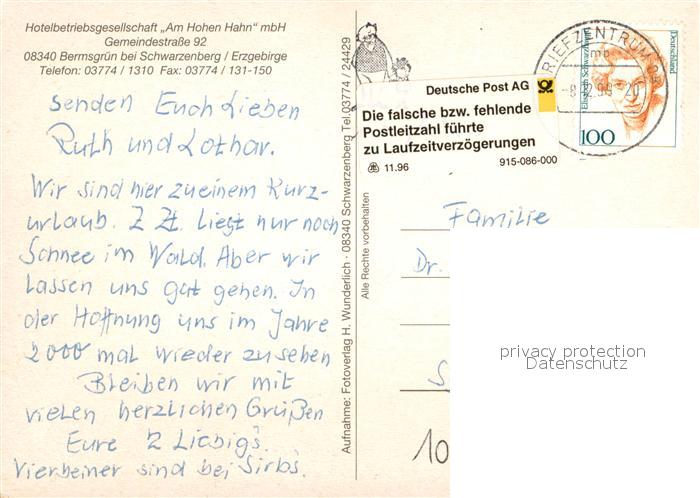 Hotelbetriebsgesellschaft „Am Hohen Hahn" mbH
Gemeindestraße 92
08340 Bermsgrün bei Schwarzenberg / Erzgebirge
Telefon: 03774 / 1310 Fax: 03774 / 131-150
senden Euch Lieben
Ruth und Lothar.
Wir sind hier zu einem Kurz-
urlaub. Z Zt. liegt nur noch
Schnee im Wald. Aber wir
lassen uns gut gehen. In
der Hoffnung uns im Jahre
2000 mal wieder zu sehen
Bleiben wir mit
vielen herzlichen Grüßen
Eure 2 Liebig's
Vierbeiner sind bei Sirb's.
Aufnahme: Fotoverlag H. Wunderlich · 08340 Schwarzenberg Tel. 03774 / 24429
Alle Rechte vorbehalten
Deutsche Post AG
Die falsche bzw. fehlende
Postleitzahl führte
zu Laufzeitverzögerungen
11.96 915-086-000
BRIEFZENTRUM
Elisabeth Schwarzhaupt
Deutschland
100
Familie
Dr.
S
10
privacy protection
Datenschutz